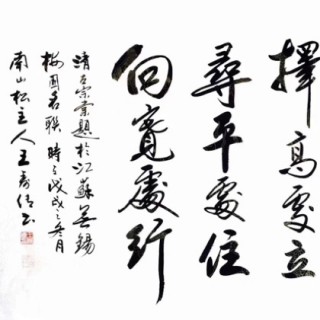 擇高處立
尋平處住
向寬處行
清左宗棠題於江蘇無錫
梅園名聯 時戊戌之冬月
南山松主人王壽书